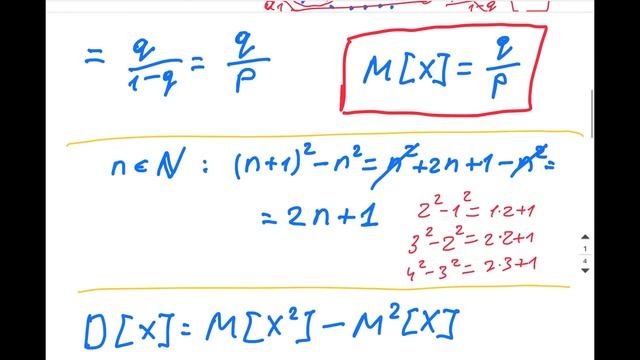 = q/(1-q) = q/p
M[X] = q/p
n ∈ N : (n+1)² - n² = n² + 2n + 1 - n² =
= 2n+1
2² - 1² = 1·2+1
3² - 2² = 2·2+1
4² - 3² = 2·3+1
D[X] = M[X²] - M²[X]
1
4